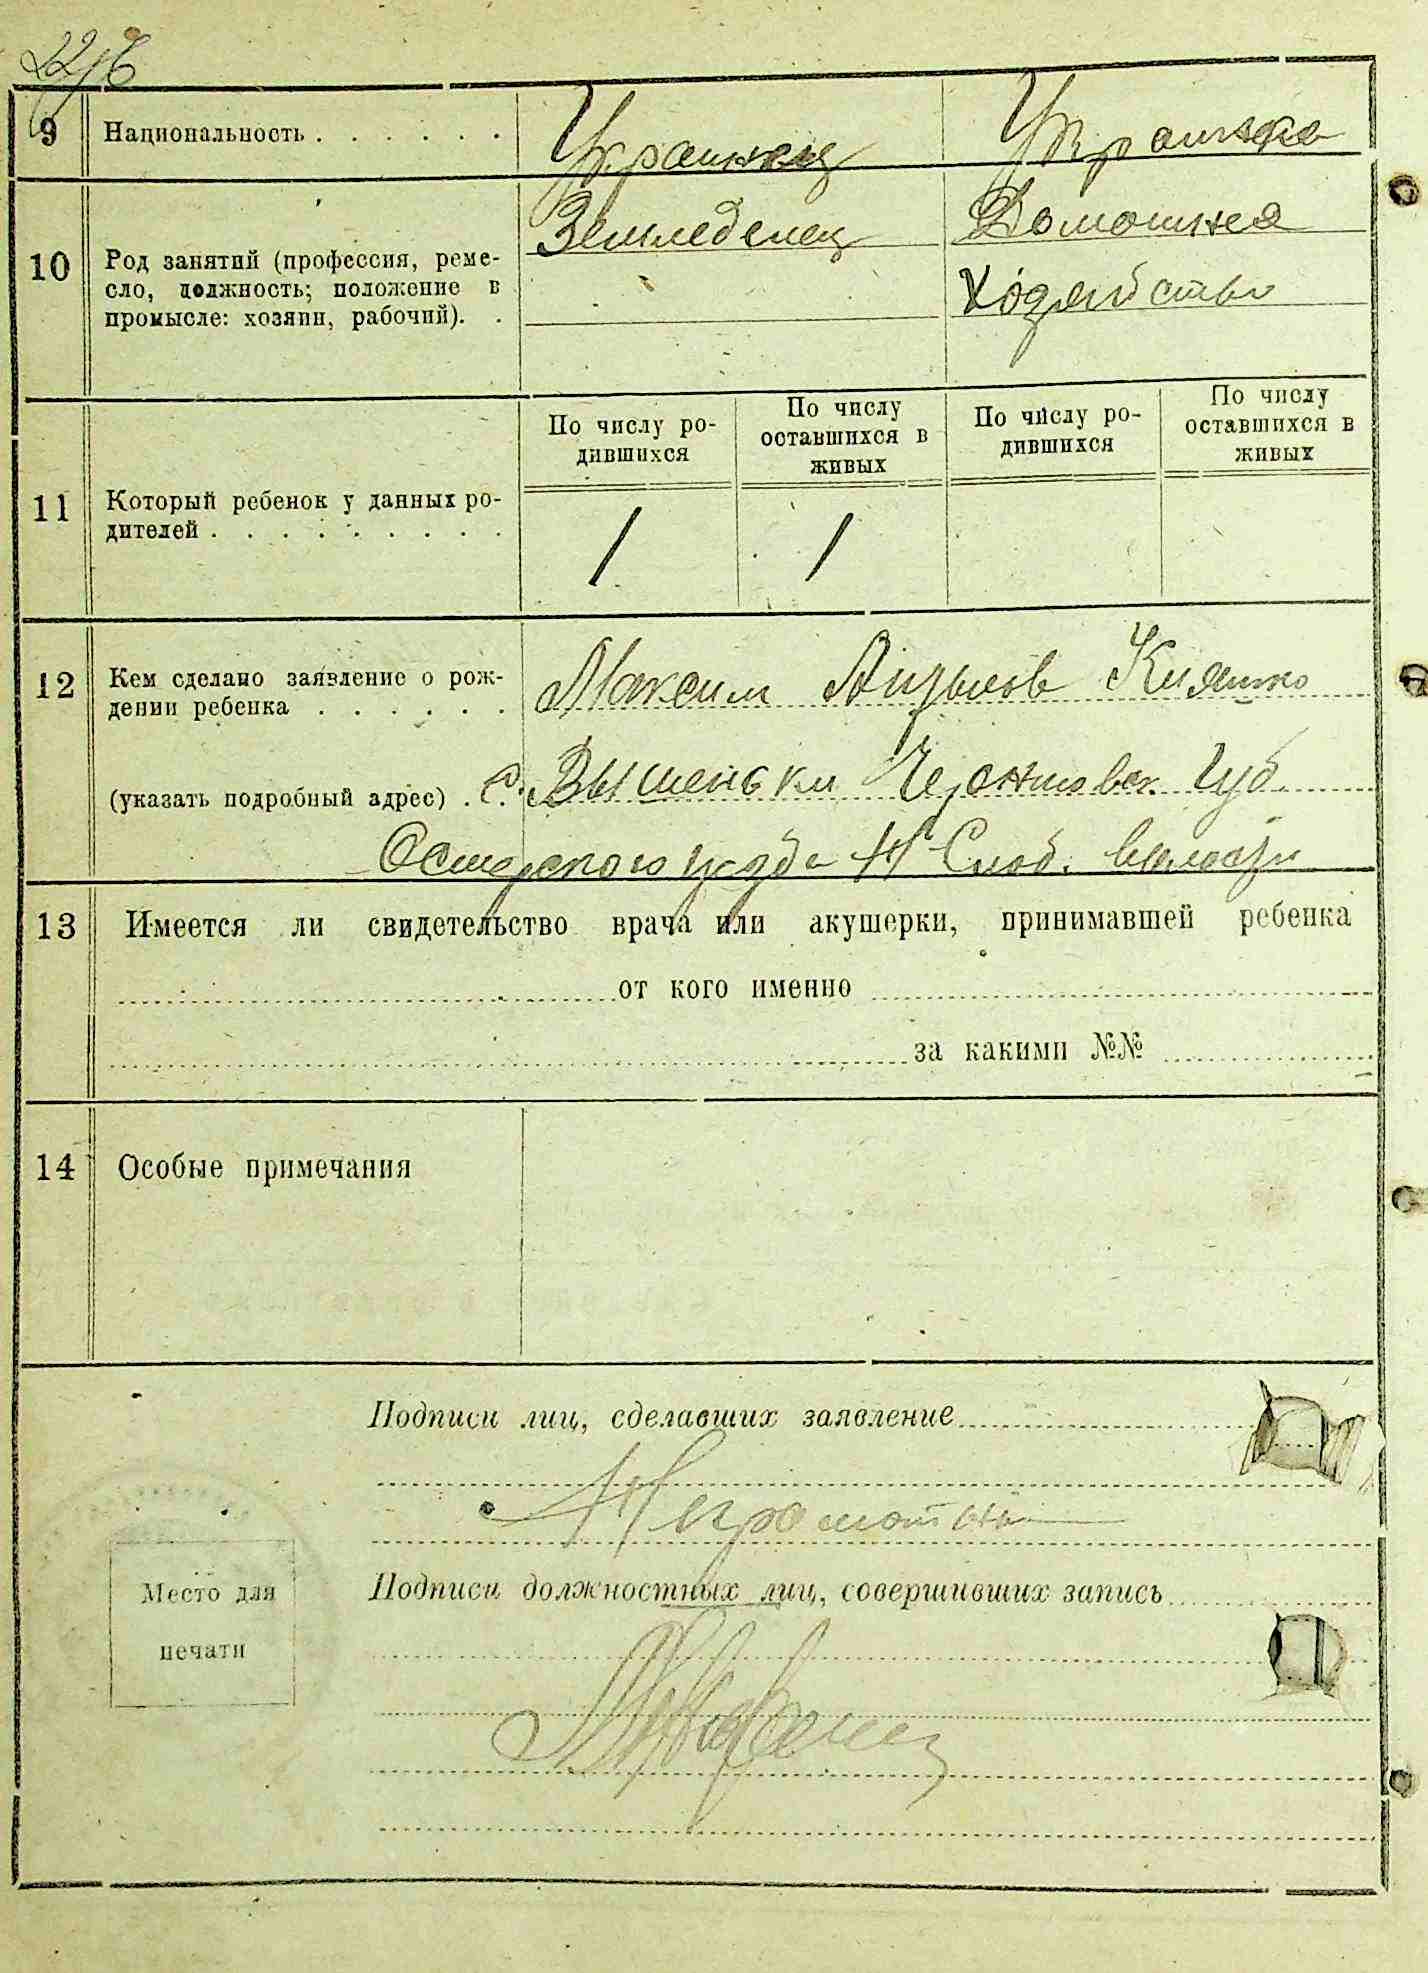 9 Национальность . . . . . . Украинец Украинка
10 Род занятий (профессия, реме-
сло, должность; положение в
промысле: хозяин, рабочий). .
Земледелец Домошнея
Хозяйство
По числу ро-
дившихся
По числу
оставшихся в
живых
По числу ро-
дившихся
По числу
оставшихся в
живых
11 Который ребенок у данных ро-
дителей . . . . . . . . .
1 1
12 Кем сделано заявление о рож-
дении ребенка . . . . . .
Максим Кияшко
(указать подробный адрес) . с. Вышеньки Черниговск. Губ.
Остерского уезда Н Слоб. волости
13 Имеется ли свидетельство врача или акушерки, принимавшей ребенка
от кого именно
за какими №№
14 Особые примечания
Подписи лиц, сделавших заявление
Неграмотны
Подписи должностных лиц, совершивших запись
Место для
печати